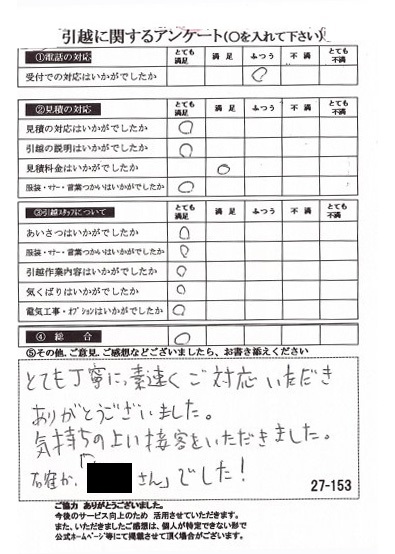 引越に関するアンケート(○を入れて下さい)
①電話の対応 とても満足 満足 ふつう 不満 とても不満
受付での対応はいかがでしたか ○
②見積の対応 とても満足 満足 ふつう 不満 とても不満
見積の対応はいかがでしたか ○
引越の説明はいかがでしたか ○
見積料金はいかがでしたか ○
服装・マナー・言葉づかいはいかがでしたか ○
③引越スタッフについて とても満足 満足 ふつう 不満 とても不満
あいさつはいかがでしたか ○
服装・マナー・言葉づかいはいかがでしたか ○
引越作業内容はいかがでしたか ○
気くばりはいかがでしたか ○
電気工事・オプションはいかがでしたか ○
④総合 ○
⑤その他、ご意見、ご感想などございましたら、お書き添えください
とても丁寧に、素速くご対応いただき
ありがとうございました。
気持ちの良い接客をいただきました。
確か、「 さん」でした!
27-153
ご協力 ありがとうございました。
今後のサービス向上のため 活用させていただきます。
また、いただきましたご感想は、個人が特定できない形で
公式ホームページ等にて掲載させて頂く場合がございます。